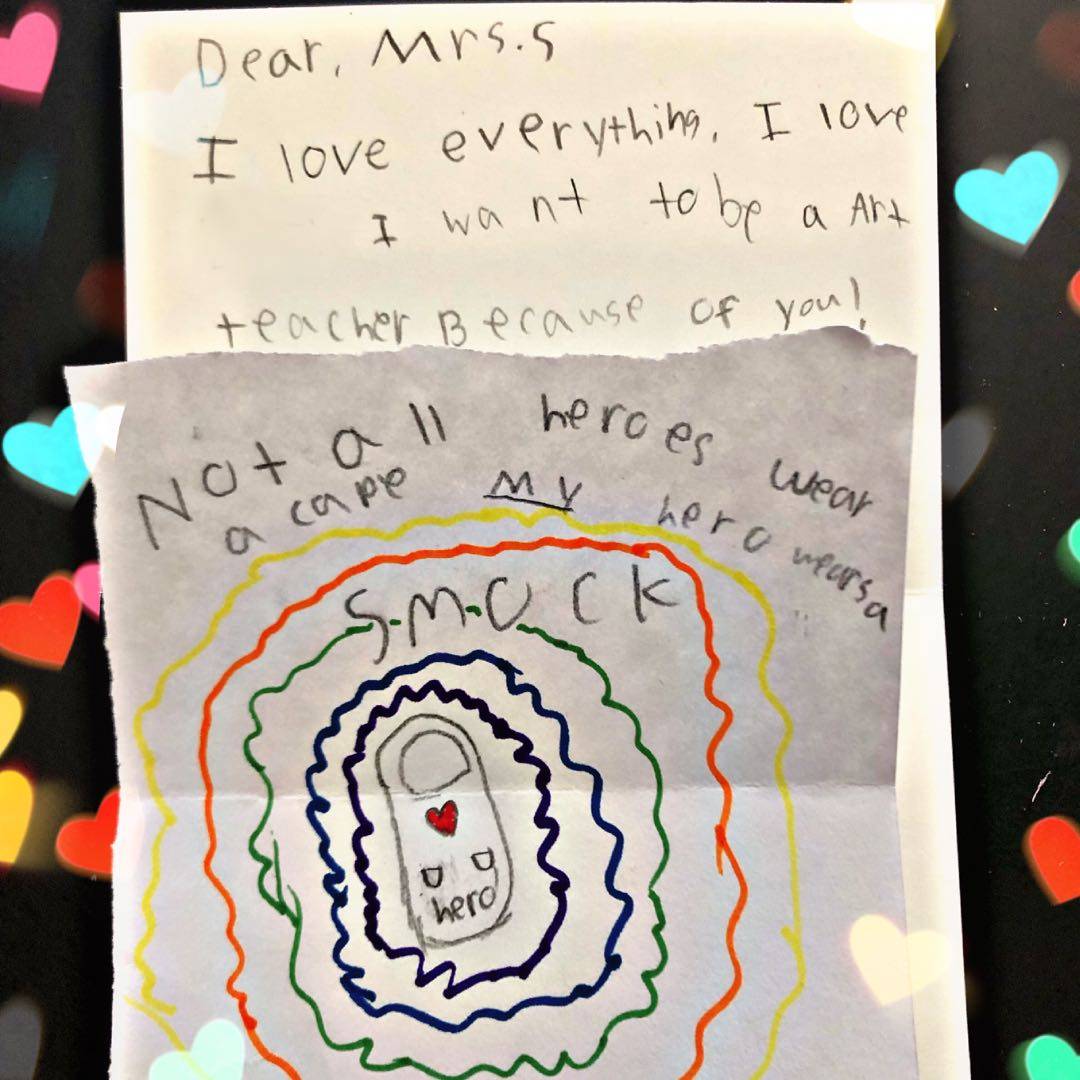 Dear, Mrs.S
I love everything. I love
I want to be a Art
teacher Because of you!
Not all heroes wear
a cape My hero wears a
SMOCK
hero